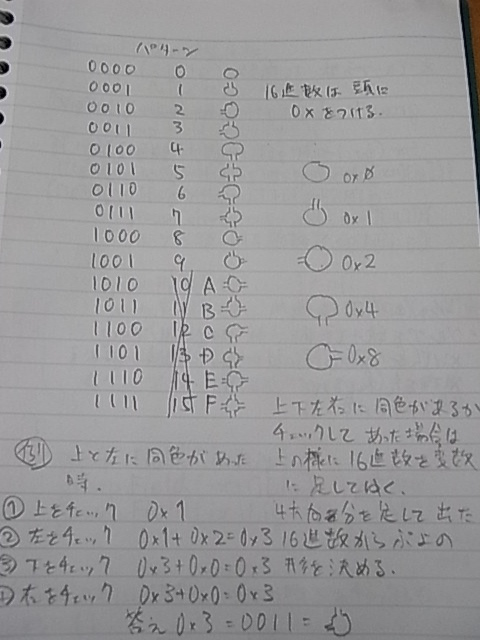 パターン
0000 0
0001 1
0010 2
0011 3
0100 4
0101 5
0110 6
0111 7
1000 8
1001 9
1010 10 A
1011 11 B
1100 12 C
1101 13 D
1110 14 E
1111 15 F
16進数は頭に
0xをつける.
0x0
0x1
0x2
0x4
0x8
上下左右に同色があるか
チェックしてあった場合は
上の様に16進数を変数
に足していく.
4方向分を足して出た
16進数からぷよの
形を決める.
例 上と左に同色があった
時.
① 上をチェック 0x1
② 左をチェック 0x1+0x2=0x3
③ 下をチェック 0x3+0x0=0x3
④ 右をチェック 0x3+0x0=0x3
答え 0x3=0011=